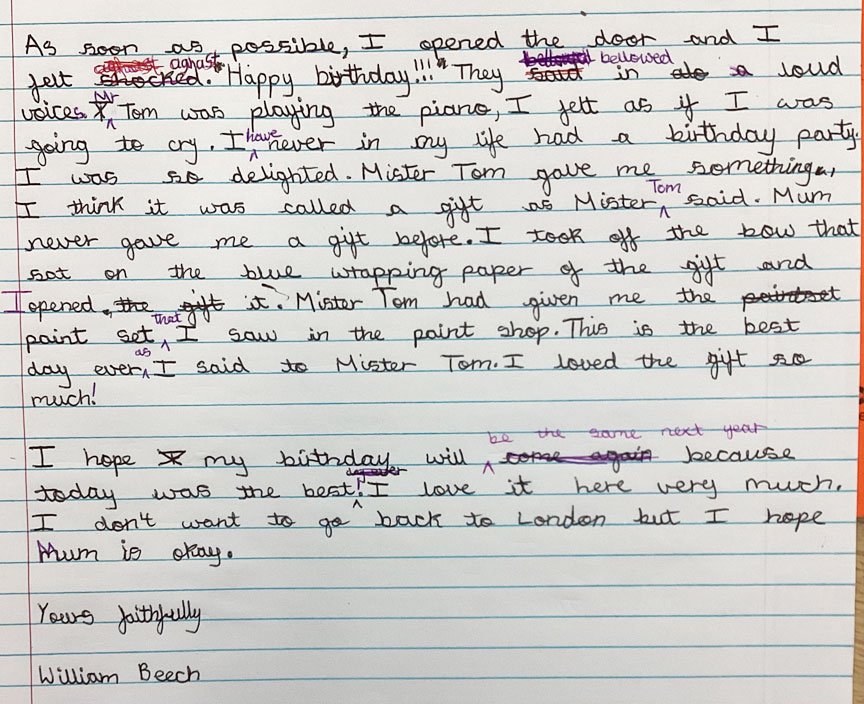 As soon as possible, I opened the door and I
felt aghast. Happy birthday!!!" They bellowed in a loud
voices. Mr Tom was playing the piano, I felt as if I was
going to cry. I have never in my life had a birthday party.
I was so delighted. Mister Tom gave me something,
I think it was called a gift as Mister Tom said. Mum
never gave me a gift before. I took off the bow that
sat on the blue wrapping paper of the gift and
I opened it. Mister Tom had given me the
paint set that I saw in the paint shop. This is the best
day ever as I said to Mister Tom. I loved the gift so
much!
I hope my birthday will be the same next year because
today was the best day ever! I love it here very much.
I don't want to go back to London but I hope
Mum is okay.
Yours faithfully
William Beech